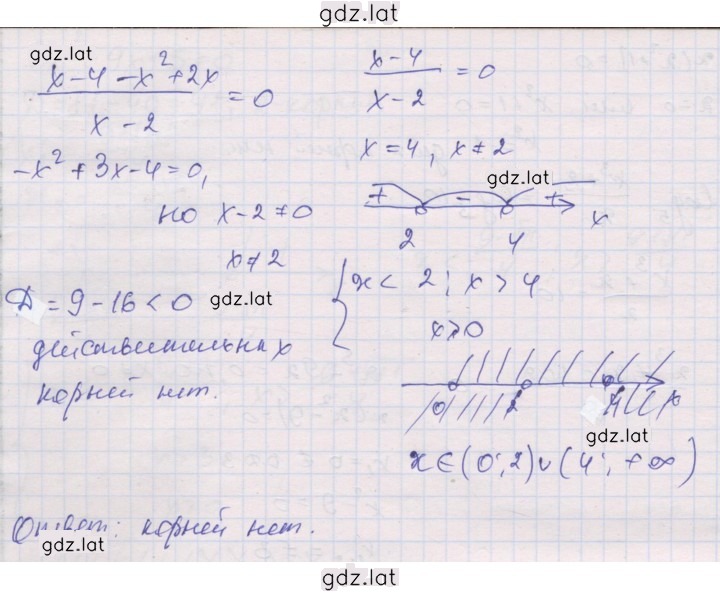 gdz.lat
gdz.lat
x-4-x²+2x / x-2 = 0
-x²+3x-4=0,
но x-2≠0
x≠2
Д = 9-16<0 gdz.lat
действительных
корней нет.
x-4 / x-2 = 0
x=4, x≠2
gdz.lat
+ - + x
2 4
{ x< 2; x> 4
x>0
0 2 4 x
gdz.lat
x∈(0;2)∪(4;+∞)
Ответ: корней нет.
gdz.lat
gdz.lat